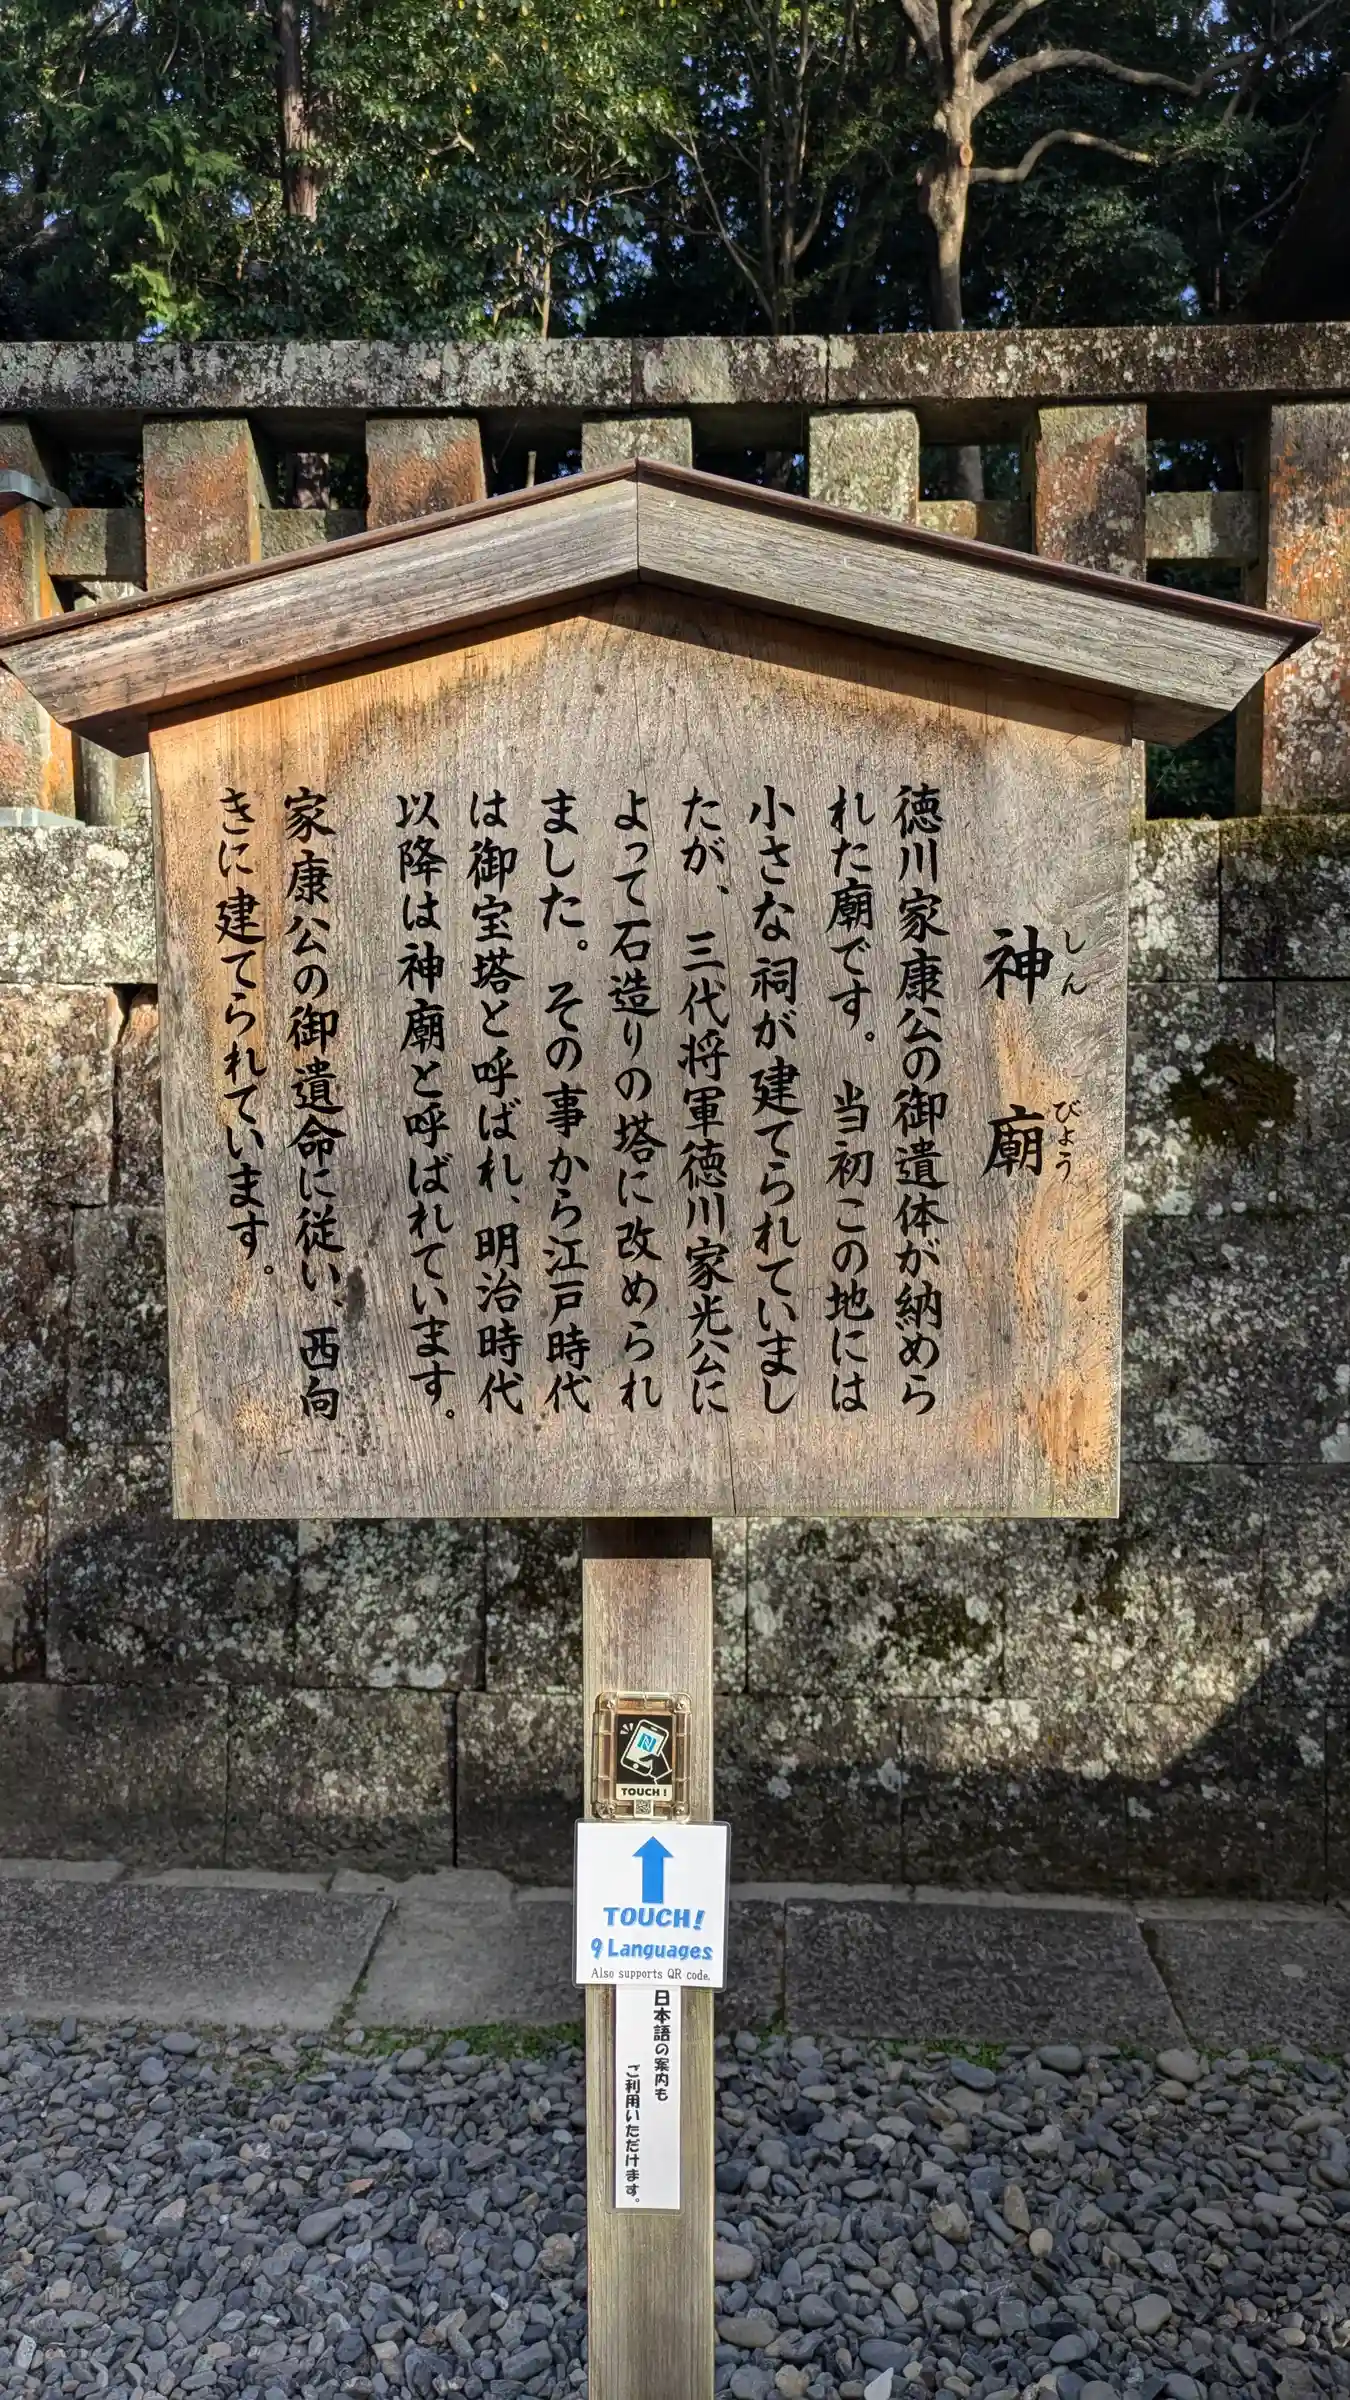 神廟
しんびょう
徳川家康公の御遺体が納めら
れた廟です。当初この地には
小さな祠が建てられていまし
たが、三代将軍徳川家光公に
よって石造りの塔に改められ
ました。その事から江戸時代
は御宝塔と呼ばれ、明治時代
以降は神廟と呼ばれています。
家康公の御遺命に従い、西向
きに建てられています。
TOUCH!
TOUCH!
9 Languages
Also supports QR code.
日本語の案内も
ご利用いただけます。